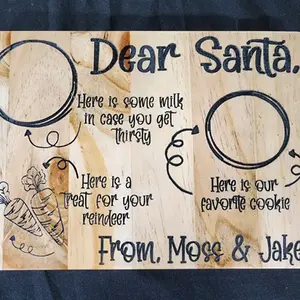 Dear Santa,
Here is some milk
in case you get
thirsty
Here is a
treat for your
reindeer
Here is our
favorite cookie
From, Moss & Jake